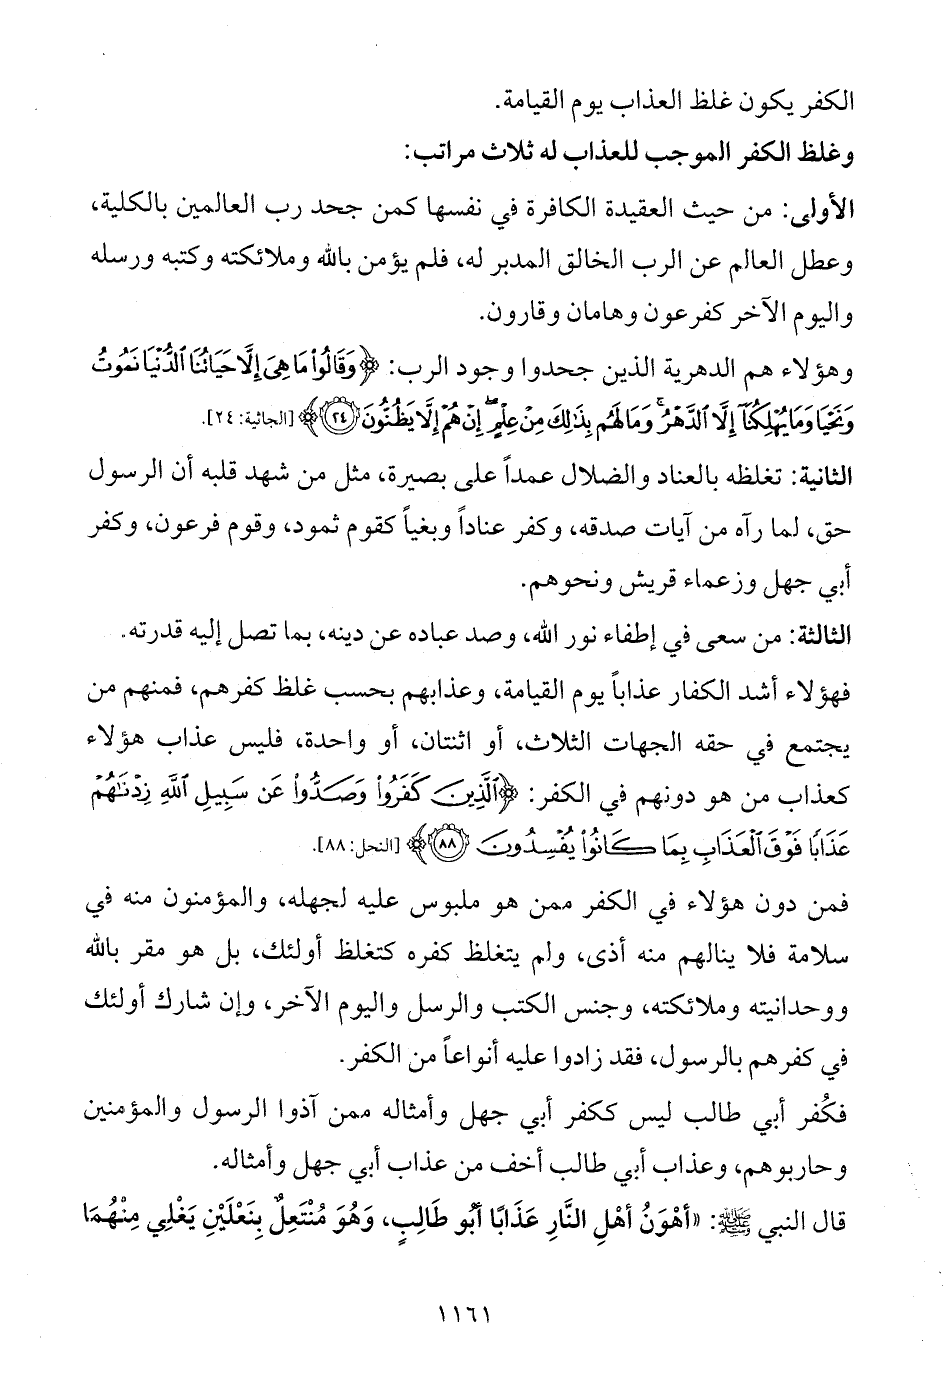 الكفر يكون غلظ العذاب يوم القيامة.
وغلظ الكفر الموجب للعذاب له ثلاث مراتب:
الأولى: من حيث العقيدة الكافرة في نفسها كمن جحد رب العالمين بالكلية،
وعطل العالم عن الرب الخالق المدبر له، فلم يؤمن بالله وملائكته وكتبه ورسله
واليوم الآخر كفرعون وهامان وقارون.
وهؤلاء هم الدهرية الذين جحدوا وجود الرب: ﴿وَقَالُواْ مَا هِىَ إِلَّا حَيَاتُنَا ٱلدُّنْيَا نَمُوتُ
وَنَحْيَا وَمَا يُهْلِكُنَآ إِلَّا ٱلدَّهْرُ ۚ وَمَا لَهُم بِذَٰلِكَ مِنْ عِلْمٍ ۖ إِنْ هُمْ إِلَّا يَظُنُّونَ ٢٤﴾ [الجاثية: ٢٤].
الثانية: تغلظه بالعناد والضلال عمداً على بصيرة، مثل من شهد قلبه أن الرسول
حق، لما رآه من آيات صدقه، وكفر عناداً وبغياً كقوم ثمود، وقوم فرعون، وكفر
أبي جهل وزعماء قريش ونحوهم.
الثالثة: من سعى في إطفاء نور الله، وصد عباده عن دينه، بما تصل إليه قدرته.
فهؤلاء أشد الكفار عذاباً يوم القيامة، وعذابهم بحسب غلظ كفرهم، فمنهم من
يجتمع في حقه الجهات الثلاث، أو اثنتان، أو واحدة، فليس عذاب هؤلاء
كعذاب من هو دونهم في الكفر: ﴿ٱلَّذِينَ كَفَرُواْ وَصَدُّواْ عَن سَبِيلِ ٱللَّهِ زِدْنَٰهُمْ
عَذَابًا فَوْقَ ٱلْعَذَابِ بِمَا كَانُواْ يُفْسِدُونَ ٨٨﴾ [النحل: ٨٨].
فمن دون هؤلاء في الكفر ممن هو ملبوس عليه لجهله، والمؤمنون منه في
سلامة فلا ينالهم منه أذى، ولم يتغلظ كفره كتغلظ أولئك، بل هو مقر بالله
ووحدانيته وملائكته، وجنس الكتب والرسل واليوم الآخر، وإن شارك أولئك
في كفرهم بالرسول، فقد زادوا عليه أنواعاً من الكفر.
فكُفر أبي طالب ليس ككفر أبي جهل وأمثاله ممن آذوا الرسول والمؤمنين
وحاربوهم، وعذاب أبي طالب أخف من عذاب أبي جهل وأمثاله.
قال النبي ﷺ: «أهْوَنُ أهْلِ النَّارِ عَذَابًا أبُو طَالِبٍ، وَهُوَ مُنْتَعِلٌ بِنَعْلَيْنِ يَغْلِي مِنْهُمَا
١١٦١